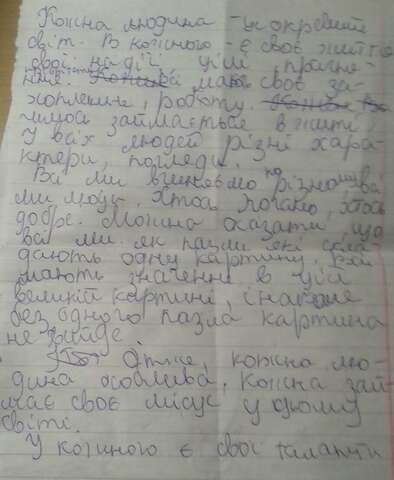 Кожна людина – це окремий
світ. В кожного є своє життя
свої надії цілі, прагне-
ння. Всі мають своє за-
хоплення, роботу.
чимось займається в житті.
У всіх людей різні хара-
ктери, погляди.
Всі ми вчиняємо по різному
ми люди. Хтось погано, хтось
добре. Можна сказати, що
всі ми як пазли які скла-
дають одну картину. Всі
мають значення в цій
великій картині, інакше
без одного пазла картина
не вийде.
Отже, кожна лю-
дина особлива, кожна зай-
має своє місце у цьому
світі.
У кожного є свої таланти